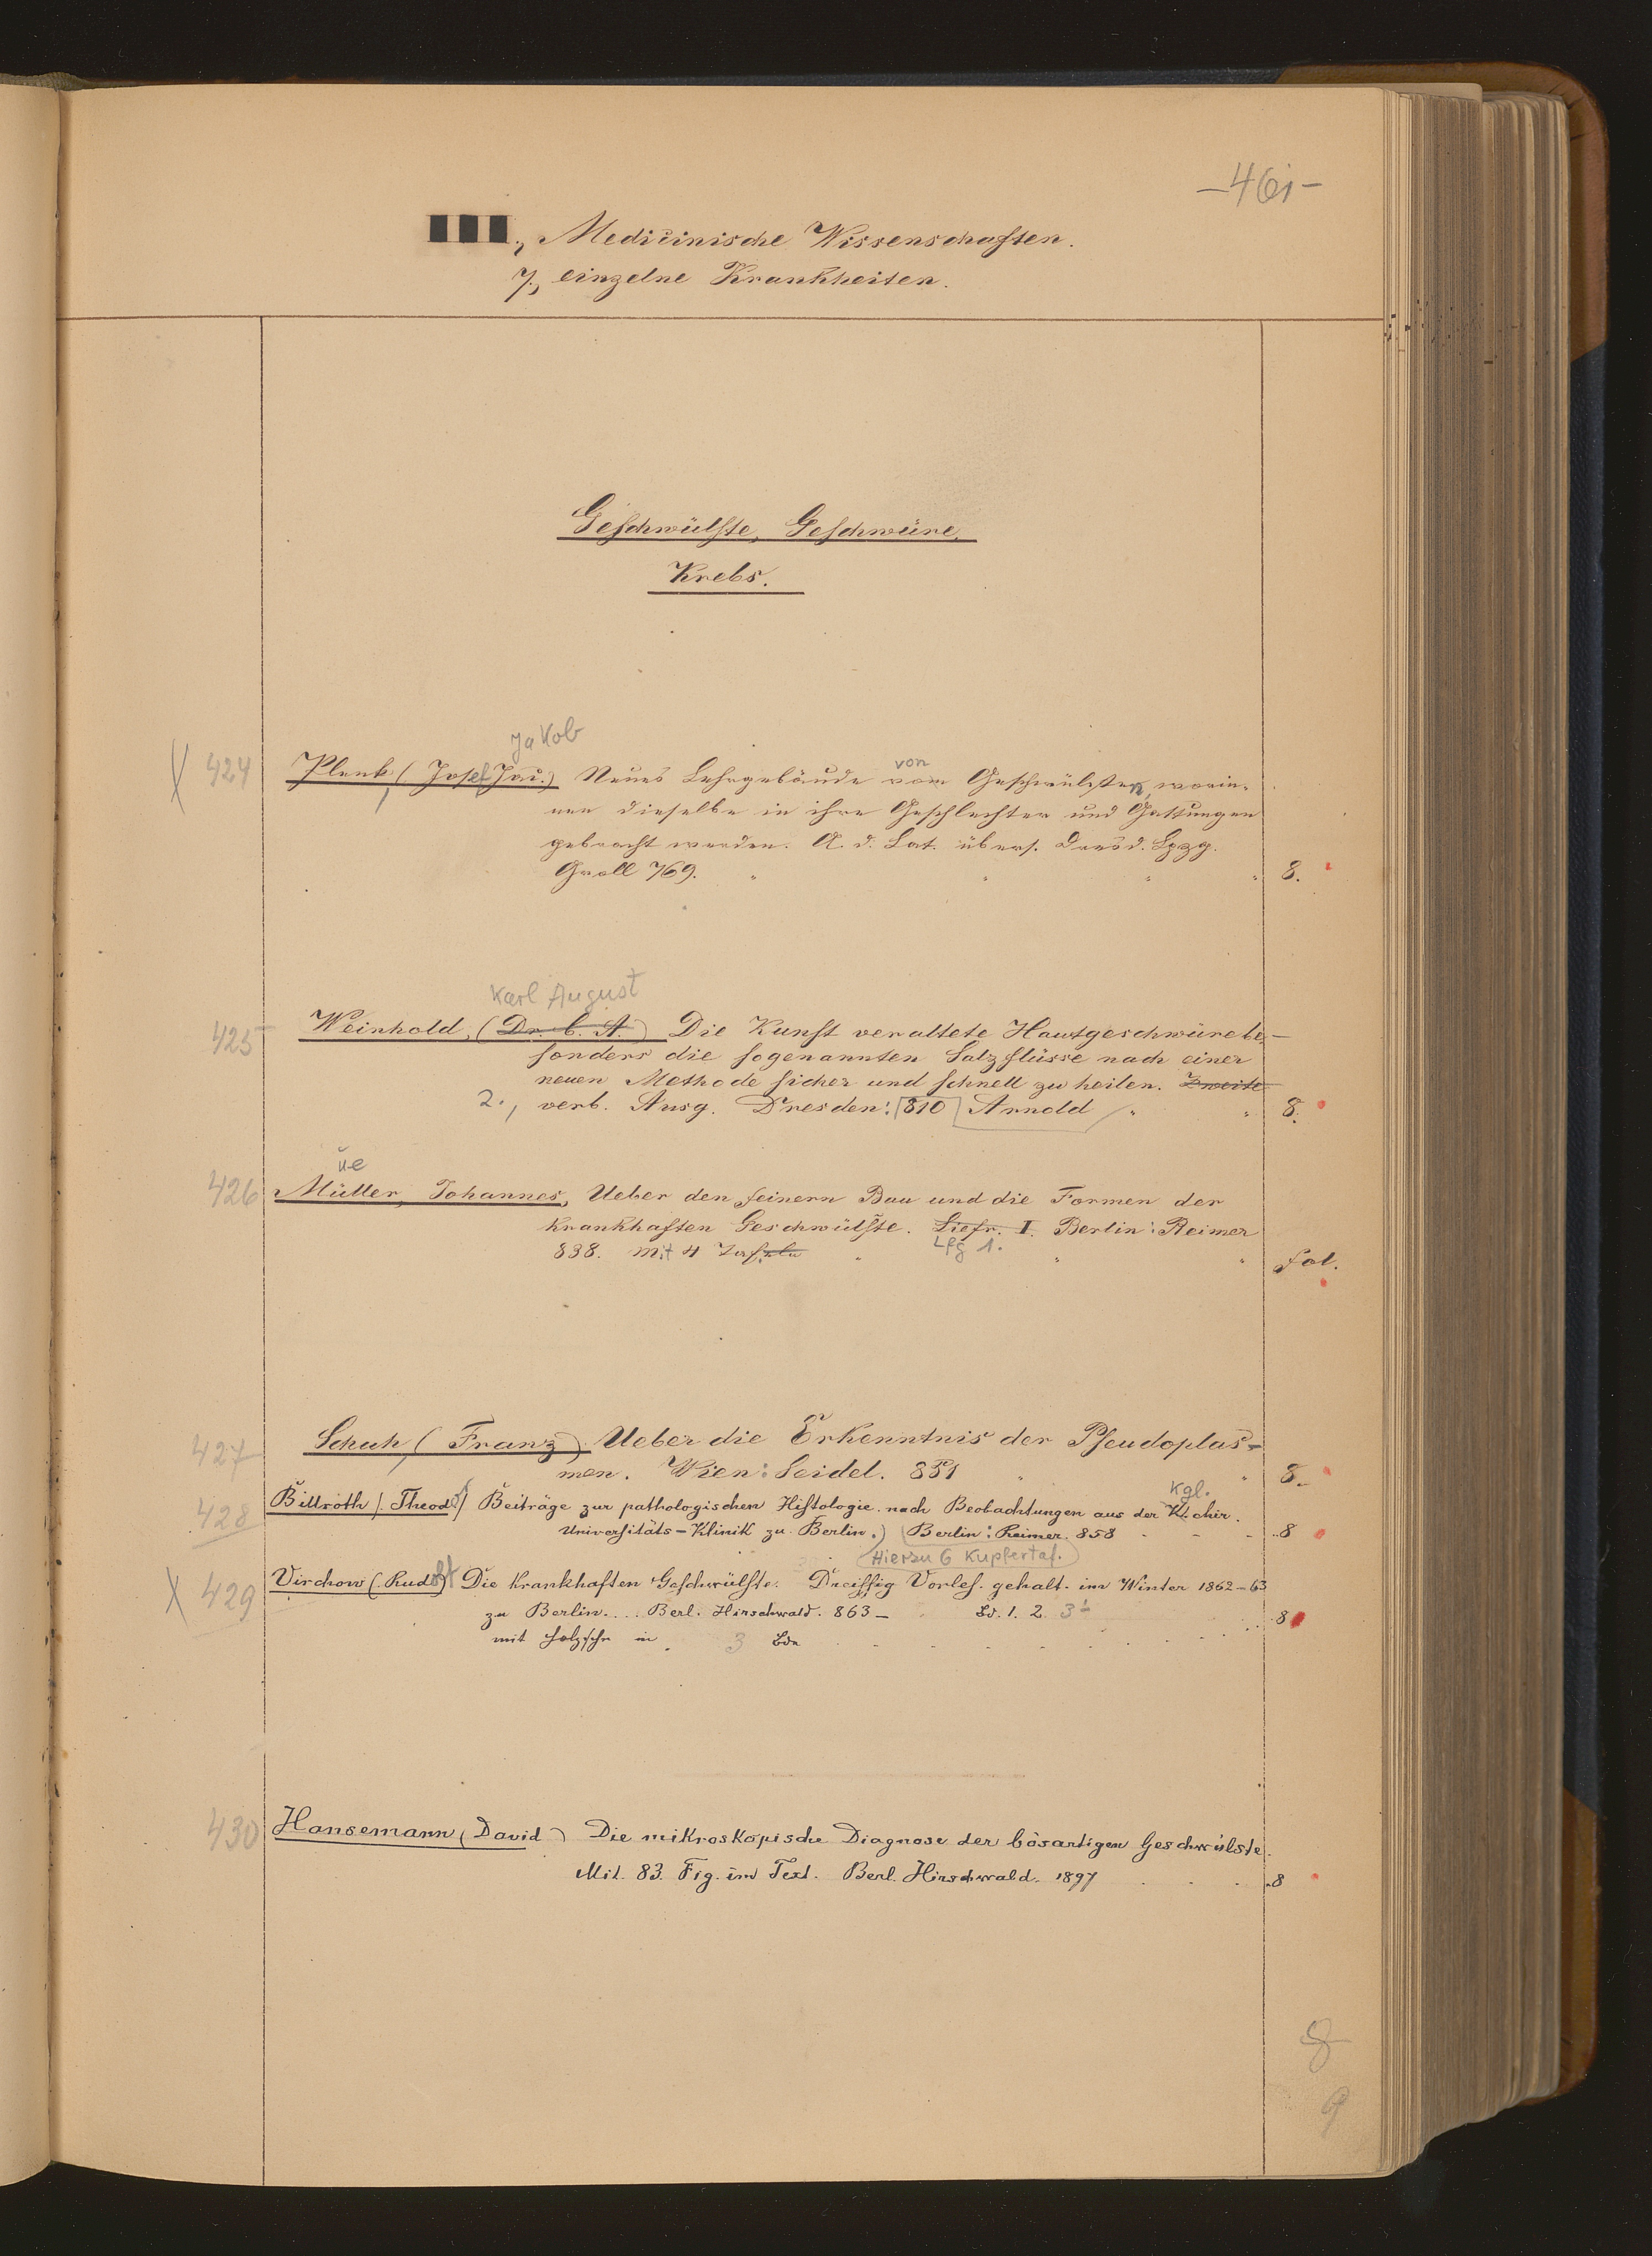 -461-
III., Medicinische Wissenschaften.
7., einzelne Krankheiten.
Geschwülste, Geschwüre,
Krebs.
Jakob
X 424 Plenk, (Josef Jac.) Neues Lehrgebäude von Geschwülsten, worin-
von
nen dieselbe in ihre Geschlechter und Gattungen
gebracht werden. A. d. Lat. übers. Dresd. Lpzg.
Groll 769. " " " " 8.
Karl August
425 Weinhold, (Dr. C. A.) Die Kunst veraltete Hautgeschwüre be-
sonders die sogenannten Salzflüsse nach einer
neuen Methode sicher und schnell zu heilen. Zweite
2., verb. Ausg. Dresden: 810 Arnold " " 8.
ue
426 Müller, Johannes, Ueber den feinern Bau und die Formen der
krankhaften Geschwülste. Liefr. I. Berlin: Reimer
Lfg 1.
838. Mit 4 Tafeln " " " fol.
427 Schuh, (Franz) Ueber die Erkenntnis der Pseudoplas-
men. Wien: Seidel. 851 " " 8.
Kgl.
428 Billroth, (Theodor) Beiträge zur pathologischen Histologie nach Beobachtungen aus der K. chir.
Universitäts-Klinik zu Berlin.) Berlin: Reimer. 858 8
Hierzu 6 Kupfertaf.
X 429 Virchow (Rudolf) Die krankhaften Geschwülste. Dreissig Vorles. gehalt. im Winter 1862-63
zu Berlin.... Berl. Hirschwald. 863- Bd. 1. 2. 3 8
mit Holzschn in 3 Bdn
430 Hansemann, (David) Die mikroskopische Diagnose der bösartigen Geschwülste.
Mit. 83. Fig. im Text. Berl. Hirschwald. 1897 8
8
9